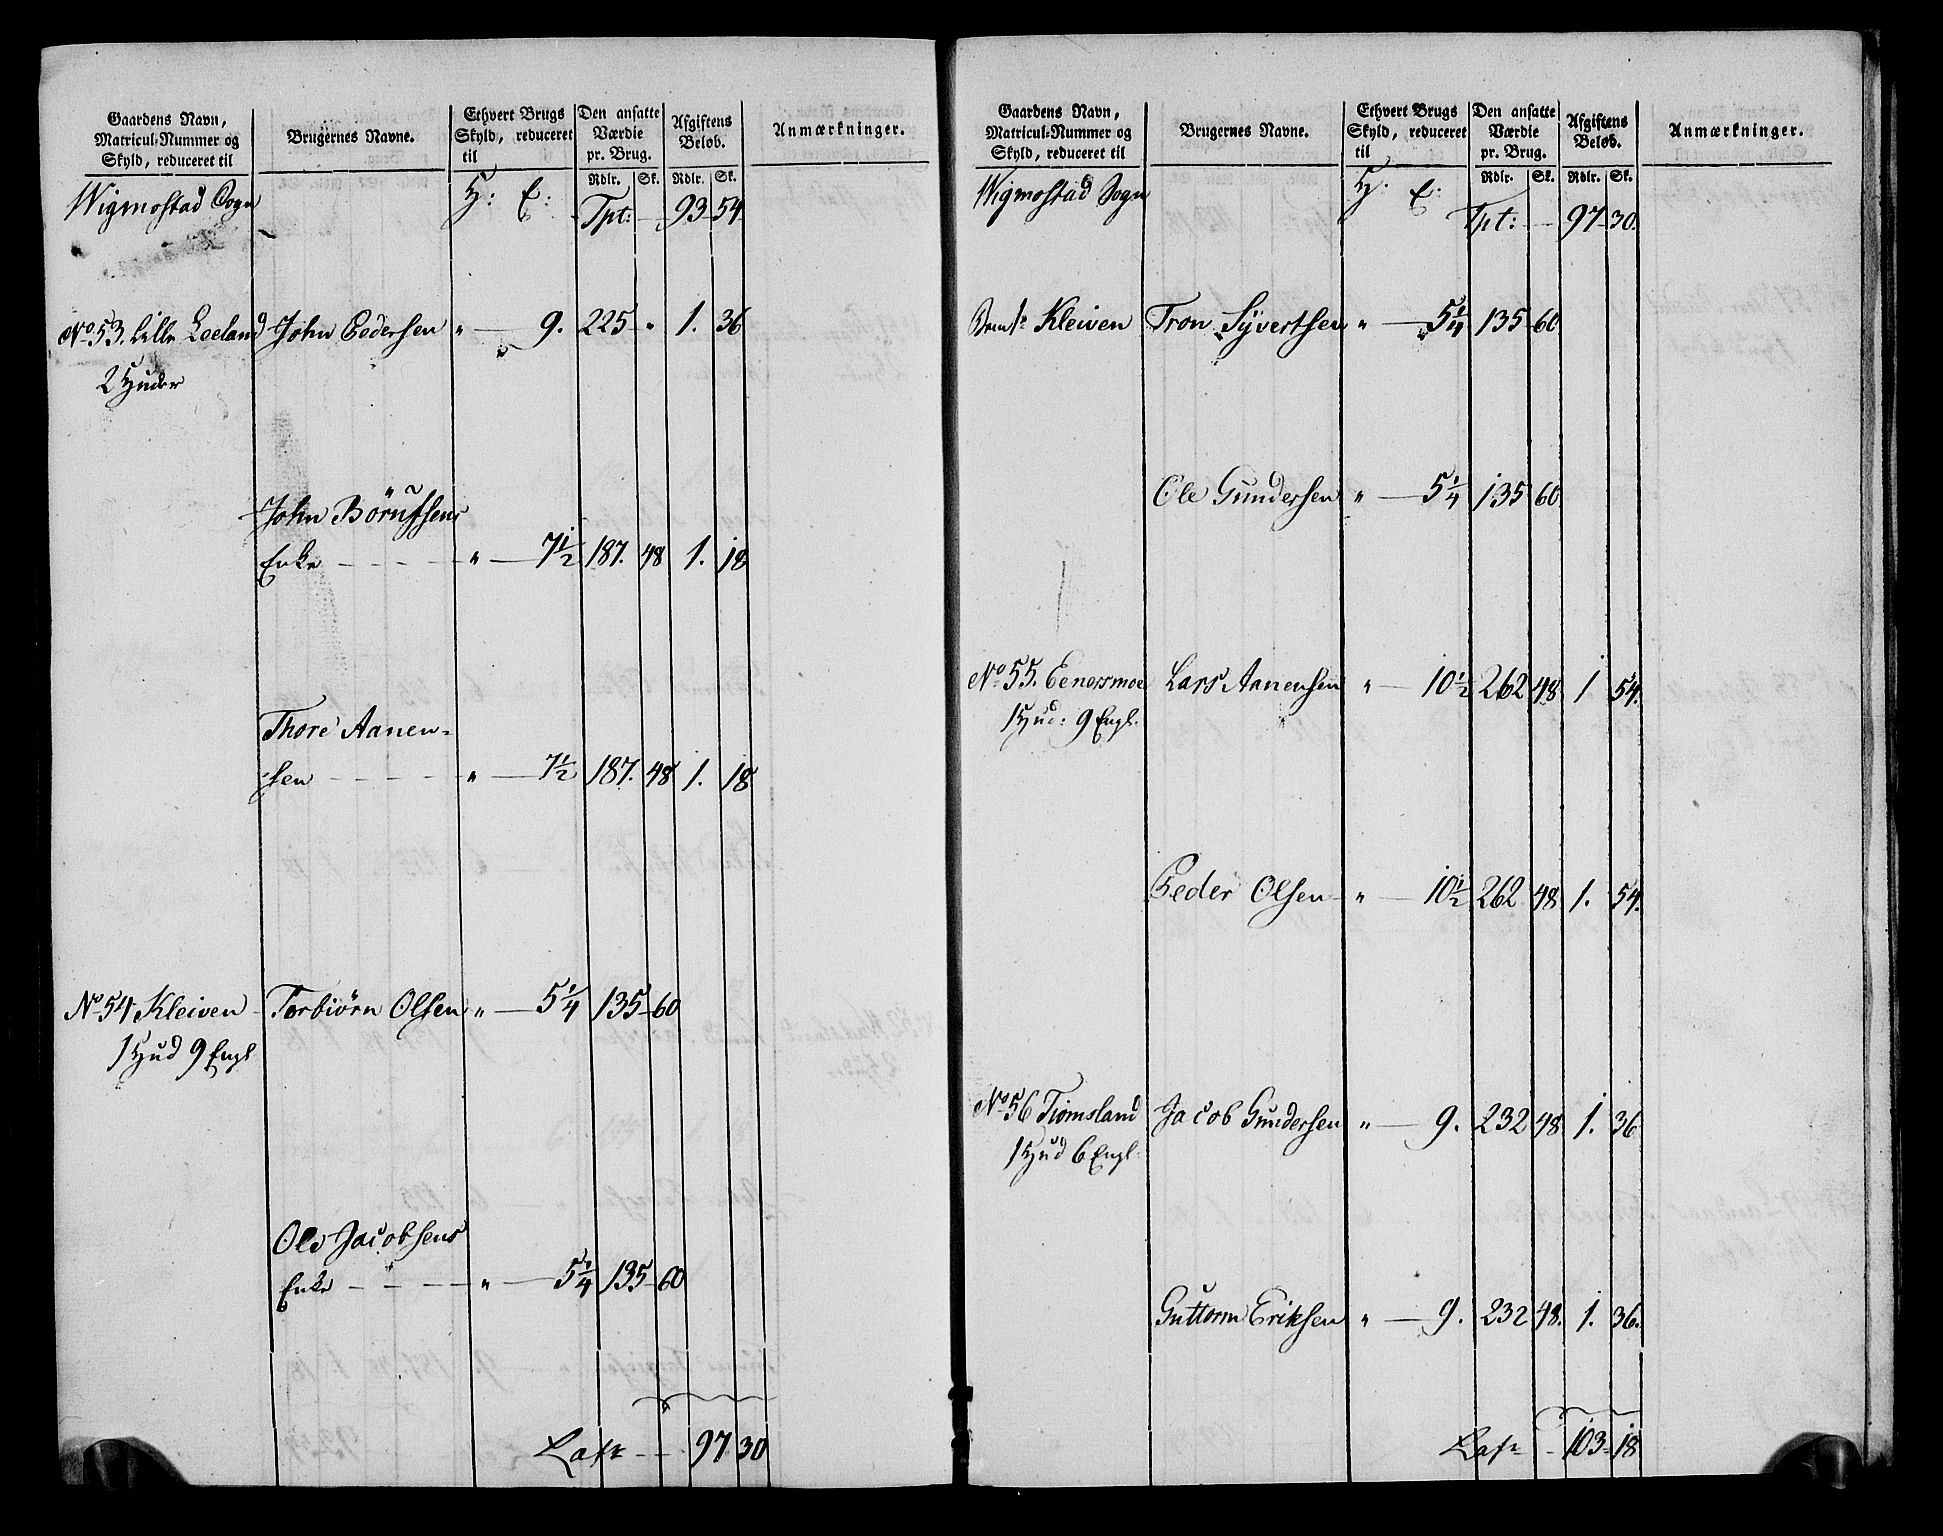 Gaardens Navn, Matricul-Nummer og Skyld, reduceret til | Brugernes Navne. | Ethvert Brugs Skyld, reduceret til | Den ansatte Værdie pr. Brug. | Afgiftens Beløb. | Anmærkninger.
Rdlr. | Sk. | Rdlr. | Sk.
Wigmostad Sogn | H: | E: | Tpt: | 93 | 54
No. 53. Lille Leeland | John Pedersen | " | 9. | 225 | " | 1. | 36
2 Huder
John Börufsens
Enke | " | 7½ | 187. | 48 | 1. | 18
Thore Aanen-
sen | " | 7½ | 187. | 48 | 1. | 18
No. 54 Kleiven | Torbiörn Olsen | " | 5¼ | 135 | 60
1 Hud 9 Engl
Ole Jacobsens
Enke | " | 5¼ | 135 | 60
Lats | 97 | 30
Gaardens Navn, Matricul-Nummer og Skyld, reduceret til | Brugernes Navne. | Ethvert Brugs Skyld, reduceret til | Den ansatte Værdie pr. Brug. | Afgiftens Beløb. | Anmærkninger.
Rdlr. | Sk. | Rdlr. | Sk.
Wigmostad Sogn | H: | E: | Tpt: | 97 | 30.
Kleiven | Tron Syvertsen | " | 5¼ | 135 | 60
Ole Gundersen | " | 5¼ | 135 | 60
No. 55. Eenersmoe | Lars Aanensen | " | 10½ | 262 | 48 | 1 | 54.
1 Hud: 9 Engl.
Peder Olsen | " | 10½ | 262 | 48 | 1. | 54.
No. 56 Tiomsland | Jacob Gundersen | " | 9. | 232 | 48 | 1. | 36
1 Hud 6 Engl.
Guttorm Eriksen | " | 9. | 232 | 48. | 1. | 36.
Lats | 103 | 18